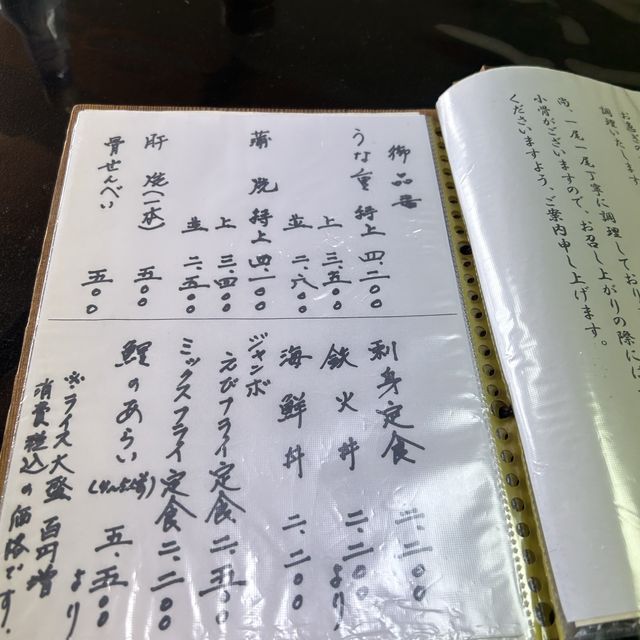 御品書
うな重 特上 四、二〇〇
上 三、五〇〇
並 二、八〇〇
蒲焼 特上 四、一〇〇
上 三、四〇〇
並 二、五〇〇
肝焼(一本) 五〇〇
骨せんべい 五〇〇
刺身定食 二、二〇〇
鉄火丼 二、二〇〇より
海鮮丼 二、二〇〇
ジャンボ
えびフライ定食 二、五〇〇
ミックスフライ定食 二、二〇〇
鯉のあらい 五、五〇〇より
※ライス大盛 百円増
消費税込の価格です。
調理いたします。
尚、一尾一尾丁寧に調理してお
小骨がございますので、お召し上がりの際には
くださいますよう、ご案内申し上げます。